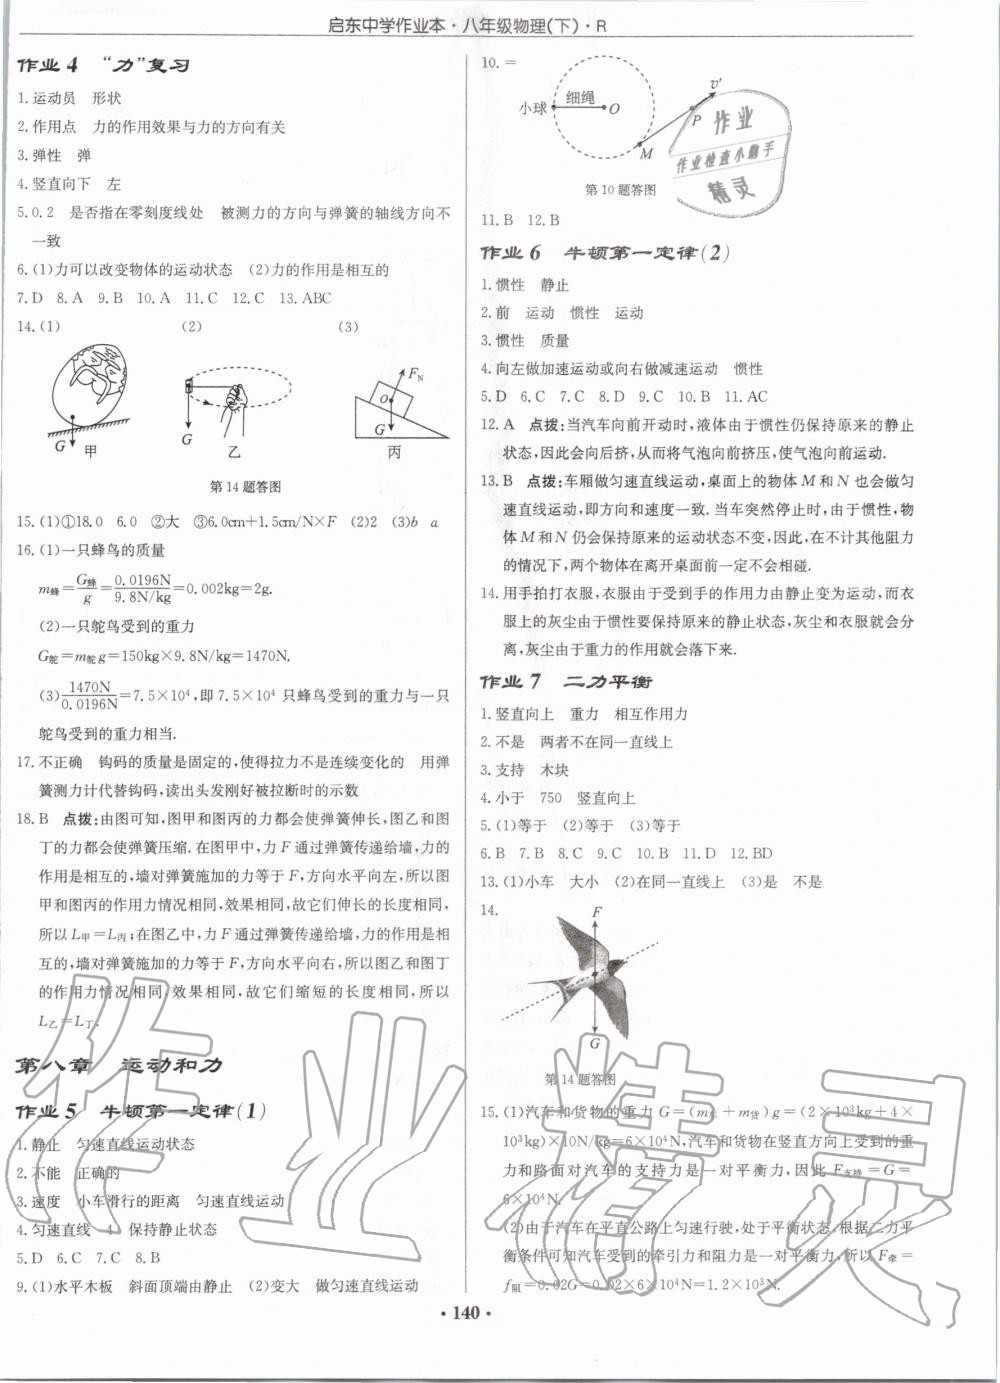 启东中学作业本·八年级物理(下)·R
作业4 “力”复习
1.运动员 形状
2.作用点 力的作用效果与力的方向有关
3.弹性 弹
4.竖直向下 左
5.0.2 是否指在零刻度线处 被测力的方向与弹簧的轴线方向不
一致
6.(1)力可以改变物体的运动状态 (2)力的作用是相互的
7.D 8.A 9.B 10.A 11.C 12.C 13.ABC
14.(1) (2) (3)
G 甲
G 乙
F_N O G 丙
第14题答图
15.(1)①18.0 6.0 ②大 ③6.0cm+1.5cm/N×F (2)2 (3)b a
16.(1)一只蜂鸟的质量
m蜂=G蜂/g=0.0196N/9.8N/kg=0.002kg=2g.
(2)一只鸵鸟受到的重力
G鸵=m鸵g=150kg×9.8N/kg=1470N.
(3)1470N/0.0196N=7.5×10⁴,即7.5×10⁴只蜂鸟受到的重力与一只
鸵鸟受到的重力相当.
17.不正确 钩码的质量是固定的,使得拉力不是连续变化的 用弹
簧测力计代替钩码,读出头发刚好被拉断时的示数
18.B 点拨:由图可知,图甲和图丙的力都会使弹簧伸长,图乙和图
丁的力都会使弹簧压缩.在图甲中,力F通过弹簧传递给墙,力的
作用是相互的,墙对弹簧施加的力等于F,方向水平向左,所以图
甲和图丙的作用力情况相同,效果相同,故它们伸长的长度相同,
所以L甲=L丙;在图乙中,力F通过弹簧传递给墙,力的作用是相
互的,墙对弹簧施加的力等于F,方向水平向右,所以图乙和图丁
的作用力情况相同,效果相同,故它们缩短的长度相同,所以
L乙=L丁.
第八章 运动和力
作业5 牛顿第一定律(1)
1.静止 匀速直线运动状态
2.不能 正确的
3.速度 小车滑行的距离 匀速直线运动
4.匀速直线 4 保持静止状态
5.D 6.C 7.C 8.B
9.(1)水平木板 斜面顶端由静止 (2)变大 做匀速直线运动
10.=
小球 细绳 O M P v′
第10题答图
作业
作业检查小助手
精灵
11.B 12.B
作业6 牛顿第一定律(2)
1.惯性 静止
2.前 运动 惯性 运动
3.惯性 质量
4.向左做加速运动或向右做减速运动 惯性
5.D 6.C 7.C 8.D 9.C 10.B 11.AC
12.A 点拨:当汽车向前开动时,液体由于惯性仍保持原来的静止
状态,因此会向后挤,从而将气泡向前挤压,使气泡向前运动.
13.B 点拨:车厢做匀速直线运动,桌面上的物体M和N也会做匀
速直线运动,即方向和速度一致.当车突然停止时,由于惯性,物
体M和N仍会保持原来的运动状态不变,因此,在不计其他阻力
的情况下,两个物体在离开桌面前一定不会相碰.
14.用手拍打衣服,衣服由于受到手的作用力由静止变为运动,而衣
服上的灰尘由于惯性要保持原来的静止状态,灰尘和衣服就会分
离,灰尘由于重力的作用就会落下来.
作业7 二力平衡
1.竖直向上 重力 相互作用力
2.不是 两者不在同一直线上
3.支持 木块
4.小于 750 竖直向上
5.(1)等于 (2)等于 (3)等于
6.B 7.B 8.C 9.C 10.B 11.D 12.BD
13.(1)小车 大小 (2)在同一直线上 (3)是 不是
14.
F
G
第14题答图
15.(1)汽车和货物的重力G=(m车+m货)g=(2×10³kg+4×
10³kg)×10N/kg=6×10⁴N,汽车和货物在竖直方向上受到的重
力和路面对汽车的支持力是一对平衡力,因此F支持=G=
6×10⁴N.
(2)由于汽车在平直公路上匀速行驶,处于平衡状态,根据二力平
衡条件可知汽车受到的牵引力和阻力是一对平衡力,所以F牵=
f阻=0.02G=0.02×6×10⁴N=1.2×10³N.
作业精灵
·140·